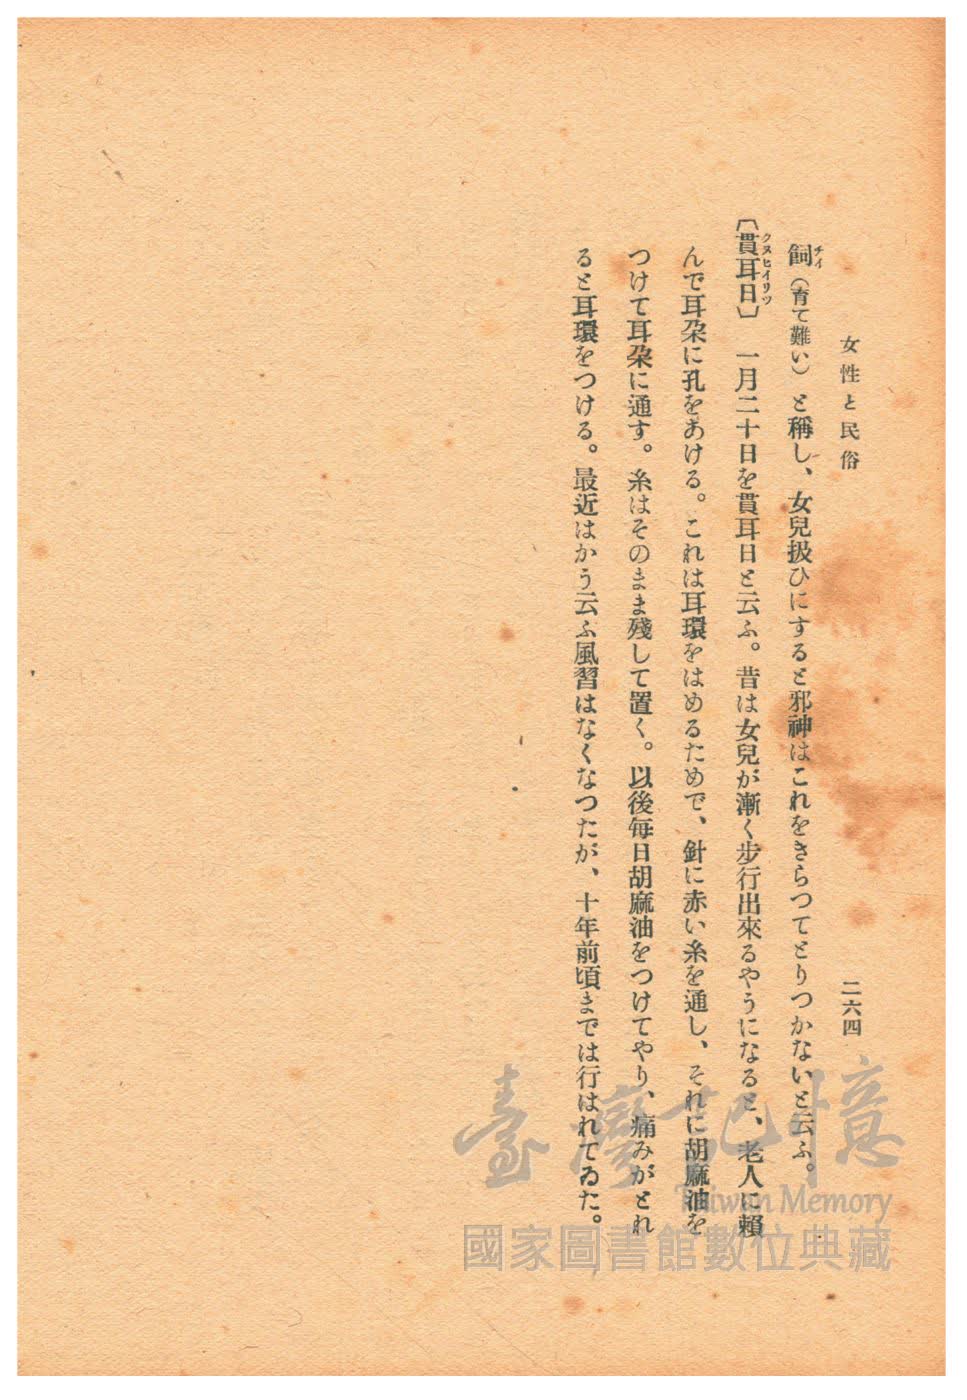 女性と民俗
二六四
飼（育て難い）と稱し、女兒扱ひにすると邪神はこれをきらつてとりつかないと云ふ。
チイ
〔貫耳日〕　一月二十日を貫耳日と云ふ。昔は女兒が漸く步行出來るやうになると、老人に賴
クヌヒイリツ
んで耳朶に孔をあける。これは耳環をはめるためで、針に赤い糸を通し、それに胡麻油を
つけて耳朶に通す。糸はそのまま殘して置く。以後每日胡麻油をつけてやり、痛みがとれ
ると耳環をつける。最近はかう云ふ風習はなくなつたが、十年前頃までは行はれてゐた。
臺灣記憶
Taiwan Memory
國家圖書館數位典藏